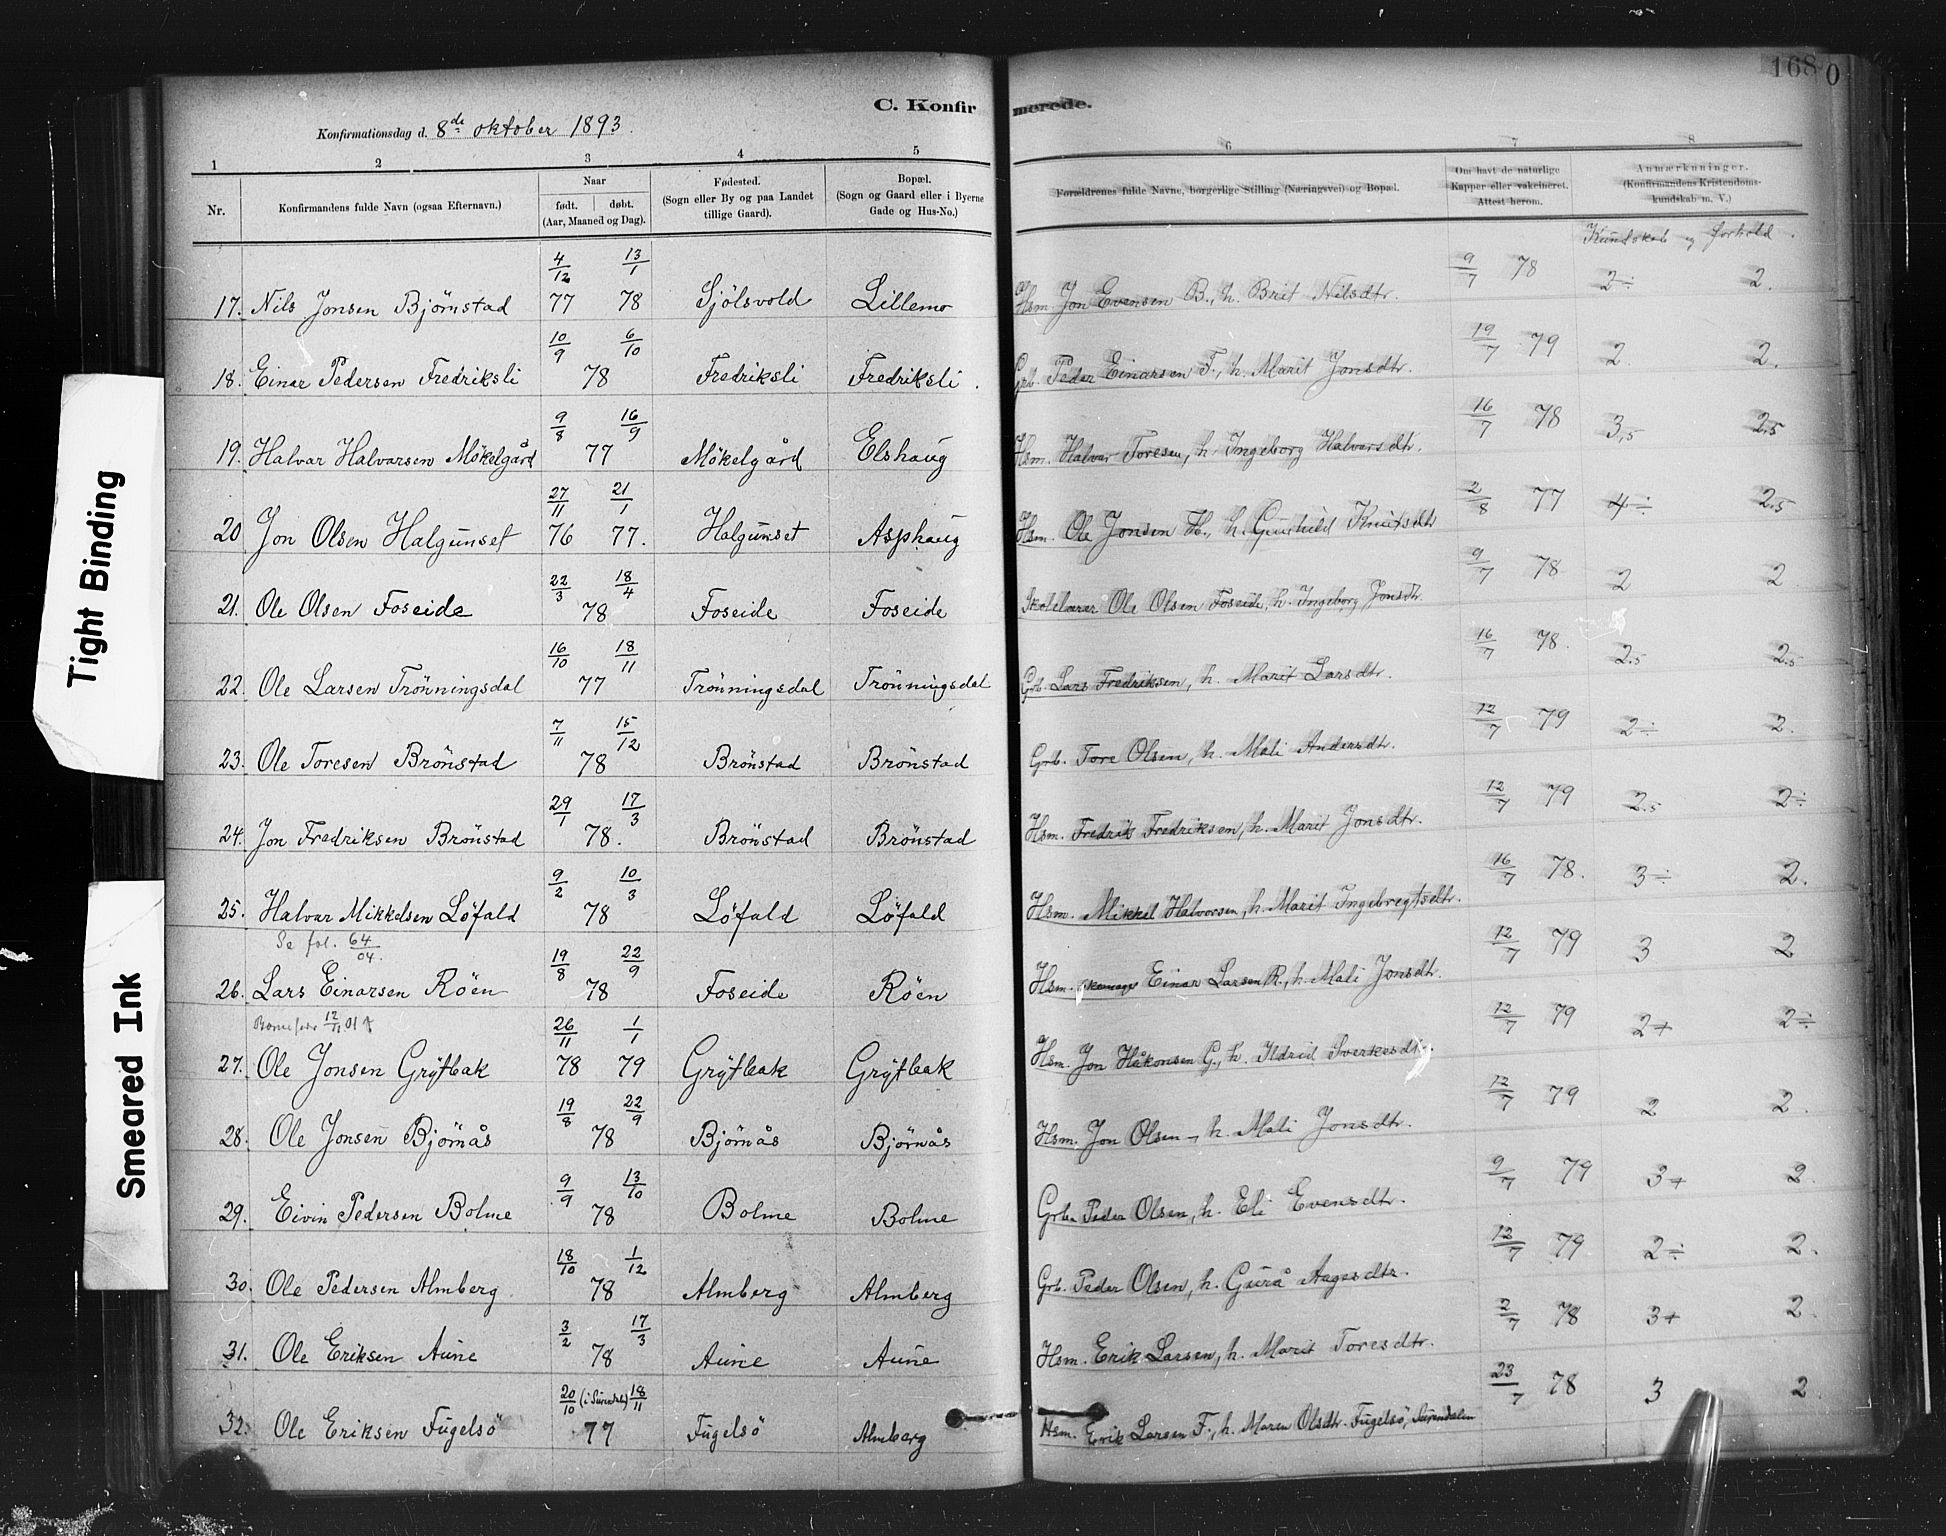 168 0
C. Konfir merede.
Konfirmationsdag d. 8de oktober 1893.
1 2 3 4 5 6 7 8
Nr. Konfirmandens fulde Navn (ogsaa Efternavn.) Naar født. døbt. (Aar, Maaned og Dag). Fødested. (Sogn eller By og paa Landet tillige Gaard). Bopæl. (Sogn og Gaard eller i Byerne Gade og Hus-No.) Forældrenes fulde Navne, borgerlige Stilling (Næringsvei) og Bopæl. Om havt de naturlige Kopper eller vakcineret. Attest herom. Anmærkninger. (Konfirmandens Kristendoms-kundskab m. V.)
Kundskab og forhold.
17. Nils Jonsen Bjørnstad 4/12 77 13/1 78 Sjölsvold Lillemo Hsm. Jon Evensen B., h. Brit Nilsdtr. 9/7 78 2÷ 2.
18. Einar Pedersen Fredriksli 10/9 6/10 78 Fredriksli Fredriksli. Grb. Peder Einarsen F., h. Marit Jonsdtr. 19/7 79 2 2.
19. Halvar Halvarsen Mökelgård 9/8 16/9 77 Mökelgård Elshaug Hsm. Halvar Toresen, h. Ingeborg Halvarsdtr. 16/7 78 3,5 2.5
20 Jon Olsen Halgunset 27/11 76 21/1 77. Halgunset Asphaug Hsm. Ole Jonsen H., h. Gunhild Knutsdtr 2/8 77 4÷ 2.5
21. Ole Olsen Foseide 22/3 18/4 78 Foseide Foseide Skolelærer Ole Olsen Foseide, h. Ingeborg Jonsdtr. 9/7 78 2 2
22. Ole Larsen Trönningsdal 16/10 18/11 77 Trönningsdal Trönningsdal Grb. Lars Fredriksen, h. Marit Larsdtr. 16/7 78. 2.5 2.5
23. Ole Toresen Brönstad 7/11 15/12 78 Brönstad Brönstad Grb. Tore Olsen, h. Mali Andersdtr. 12/7 79 2÷ 2.
24. Jon Fredriksen Brönstad 29/1 17/3 78. Brönstad Brönstad Hsm. Fredrik Fredriksen, h. Marit Jonsdtr. 12/7 79 2.5 2÷
25. Halvar Mikkelsen Löfald 9/2 10/3 78 Löfald Löfald Hsm. Mikkel Halvorsen, h. Marit Ingebregtsdtr. 16/7 78. 3÷ 2.
Se fol. 64/04.
26. Lars Einarsen Röen 19/8 22/9 78 Foseide Röen Hsm. Einar Larsen R., h. Mali Jonsdtr. 12/7 79 3 2
12/11 01
27. Ole Jonsen Grytbak 26/11 78 1/1 79 Grytbak Grytbak Hsm. Jon Håkonsen G., h. Ildrid Sverkesdtr. 12/7 79 2+ 2÷
28. Ole Jonsen Bjørnås 19/8 22/9 78 Bjørnås Bjørnås Hsm. Jon Olsen, h. Mali Jonsdtr. 12/7 79 2 2.
29. Eivin Pedersen Bolme 9/9 13/10 78 Bolme Bolme Grb. Peder Olsen, h. Eli Evensdtr. 9/7 79 3+ 2.
30. Ole Pedersen Almberg 18/10 1/12 78 Almberg Almberg Grb. Peder Olsen, h. Gurå Aagesdtr. 12/7 79 2÷ 2.
31. Ole Eriksen Aune 3/2 17/3 78 Aune Aune Hsm. Erik Larsen, h. Marit Toresdtr. 2/7 78 3+ 2.
32. Ole Eriksen Fugelsö 20/10 (i Surendal) 18/11 77 Fugelsö Almberg Hsm. Erik Larsen F., h. Maren Olsdtr. Fugelsö, Surendalen 23/7 78 3 2.
Tight Binding
Smeared Ink